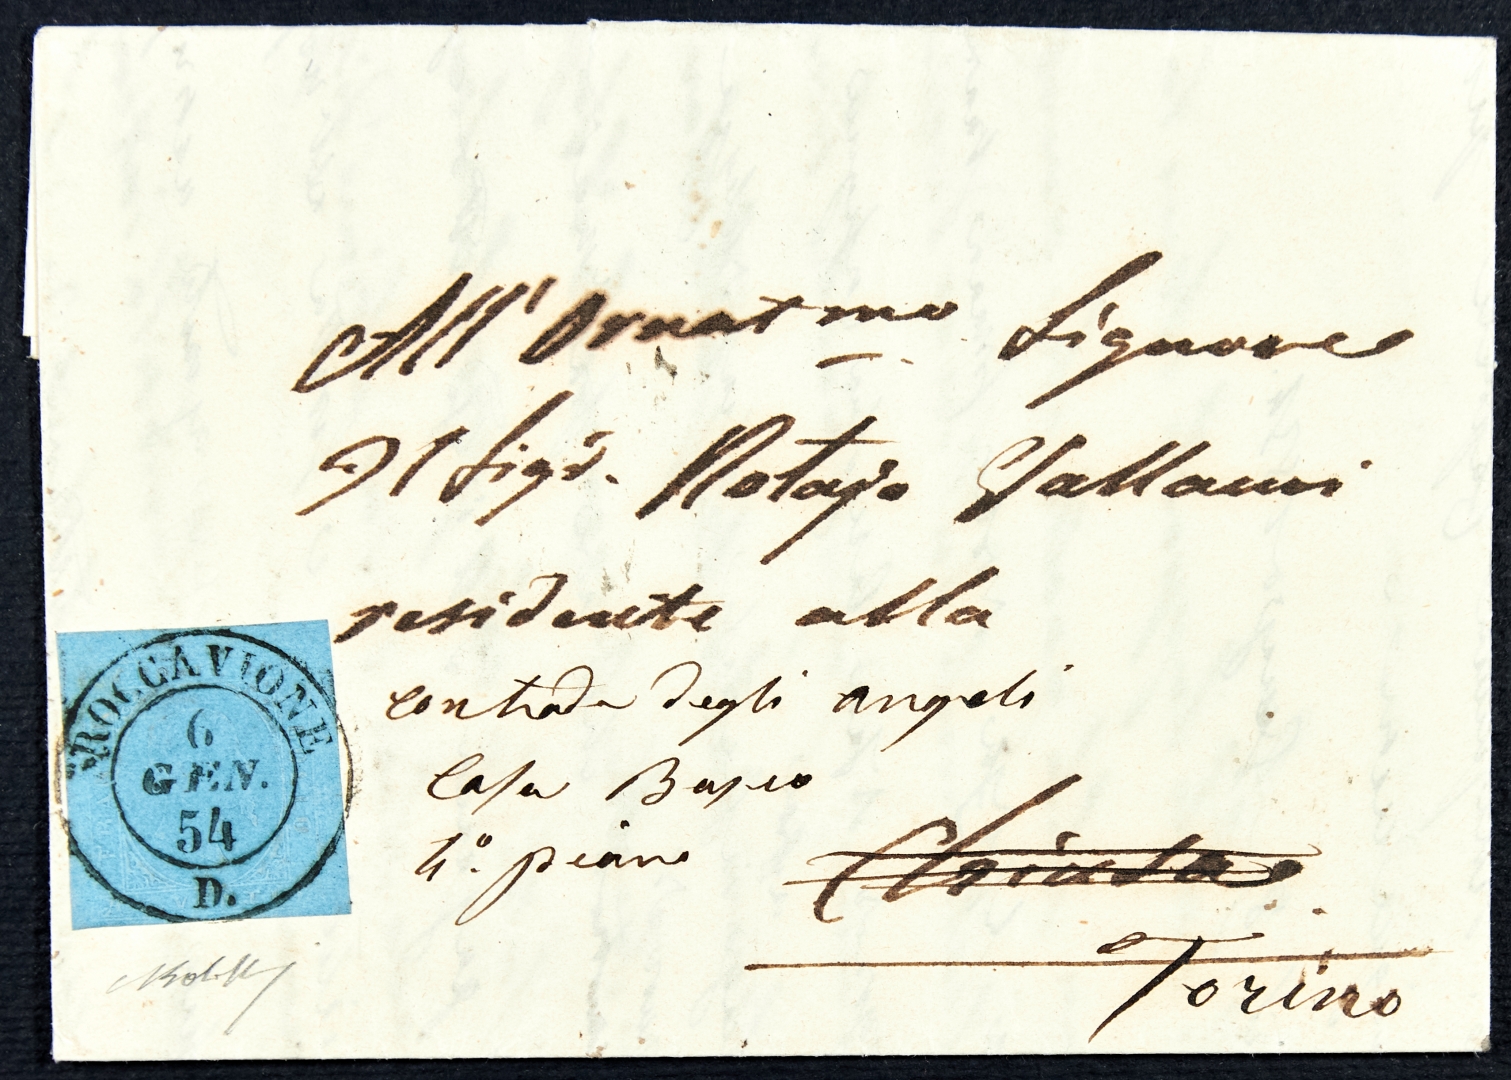 All' Ornatmo Signore
Il Sigr. Notajo Gallauri
residente alla
contrada degli angeli
Casa Basco
4º. piano
Chiusa
Torino
ROCCAVIONE
6
GEN.
54
D.